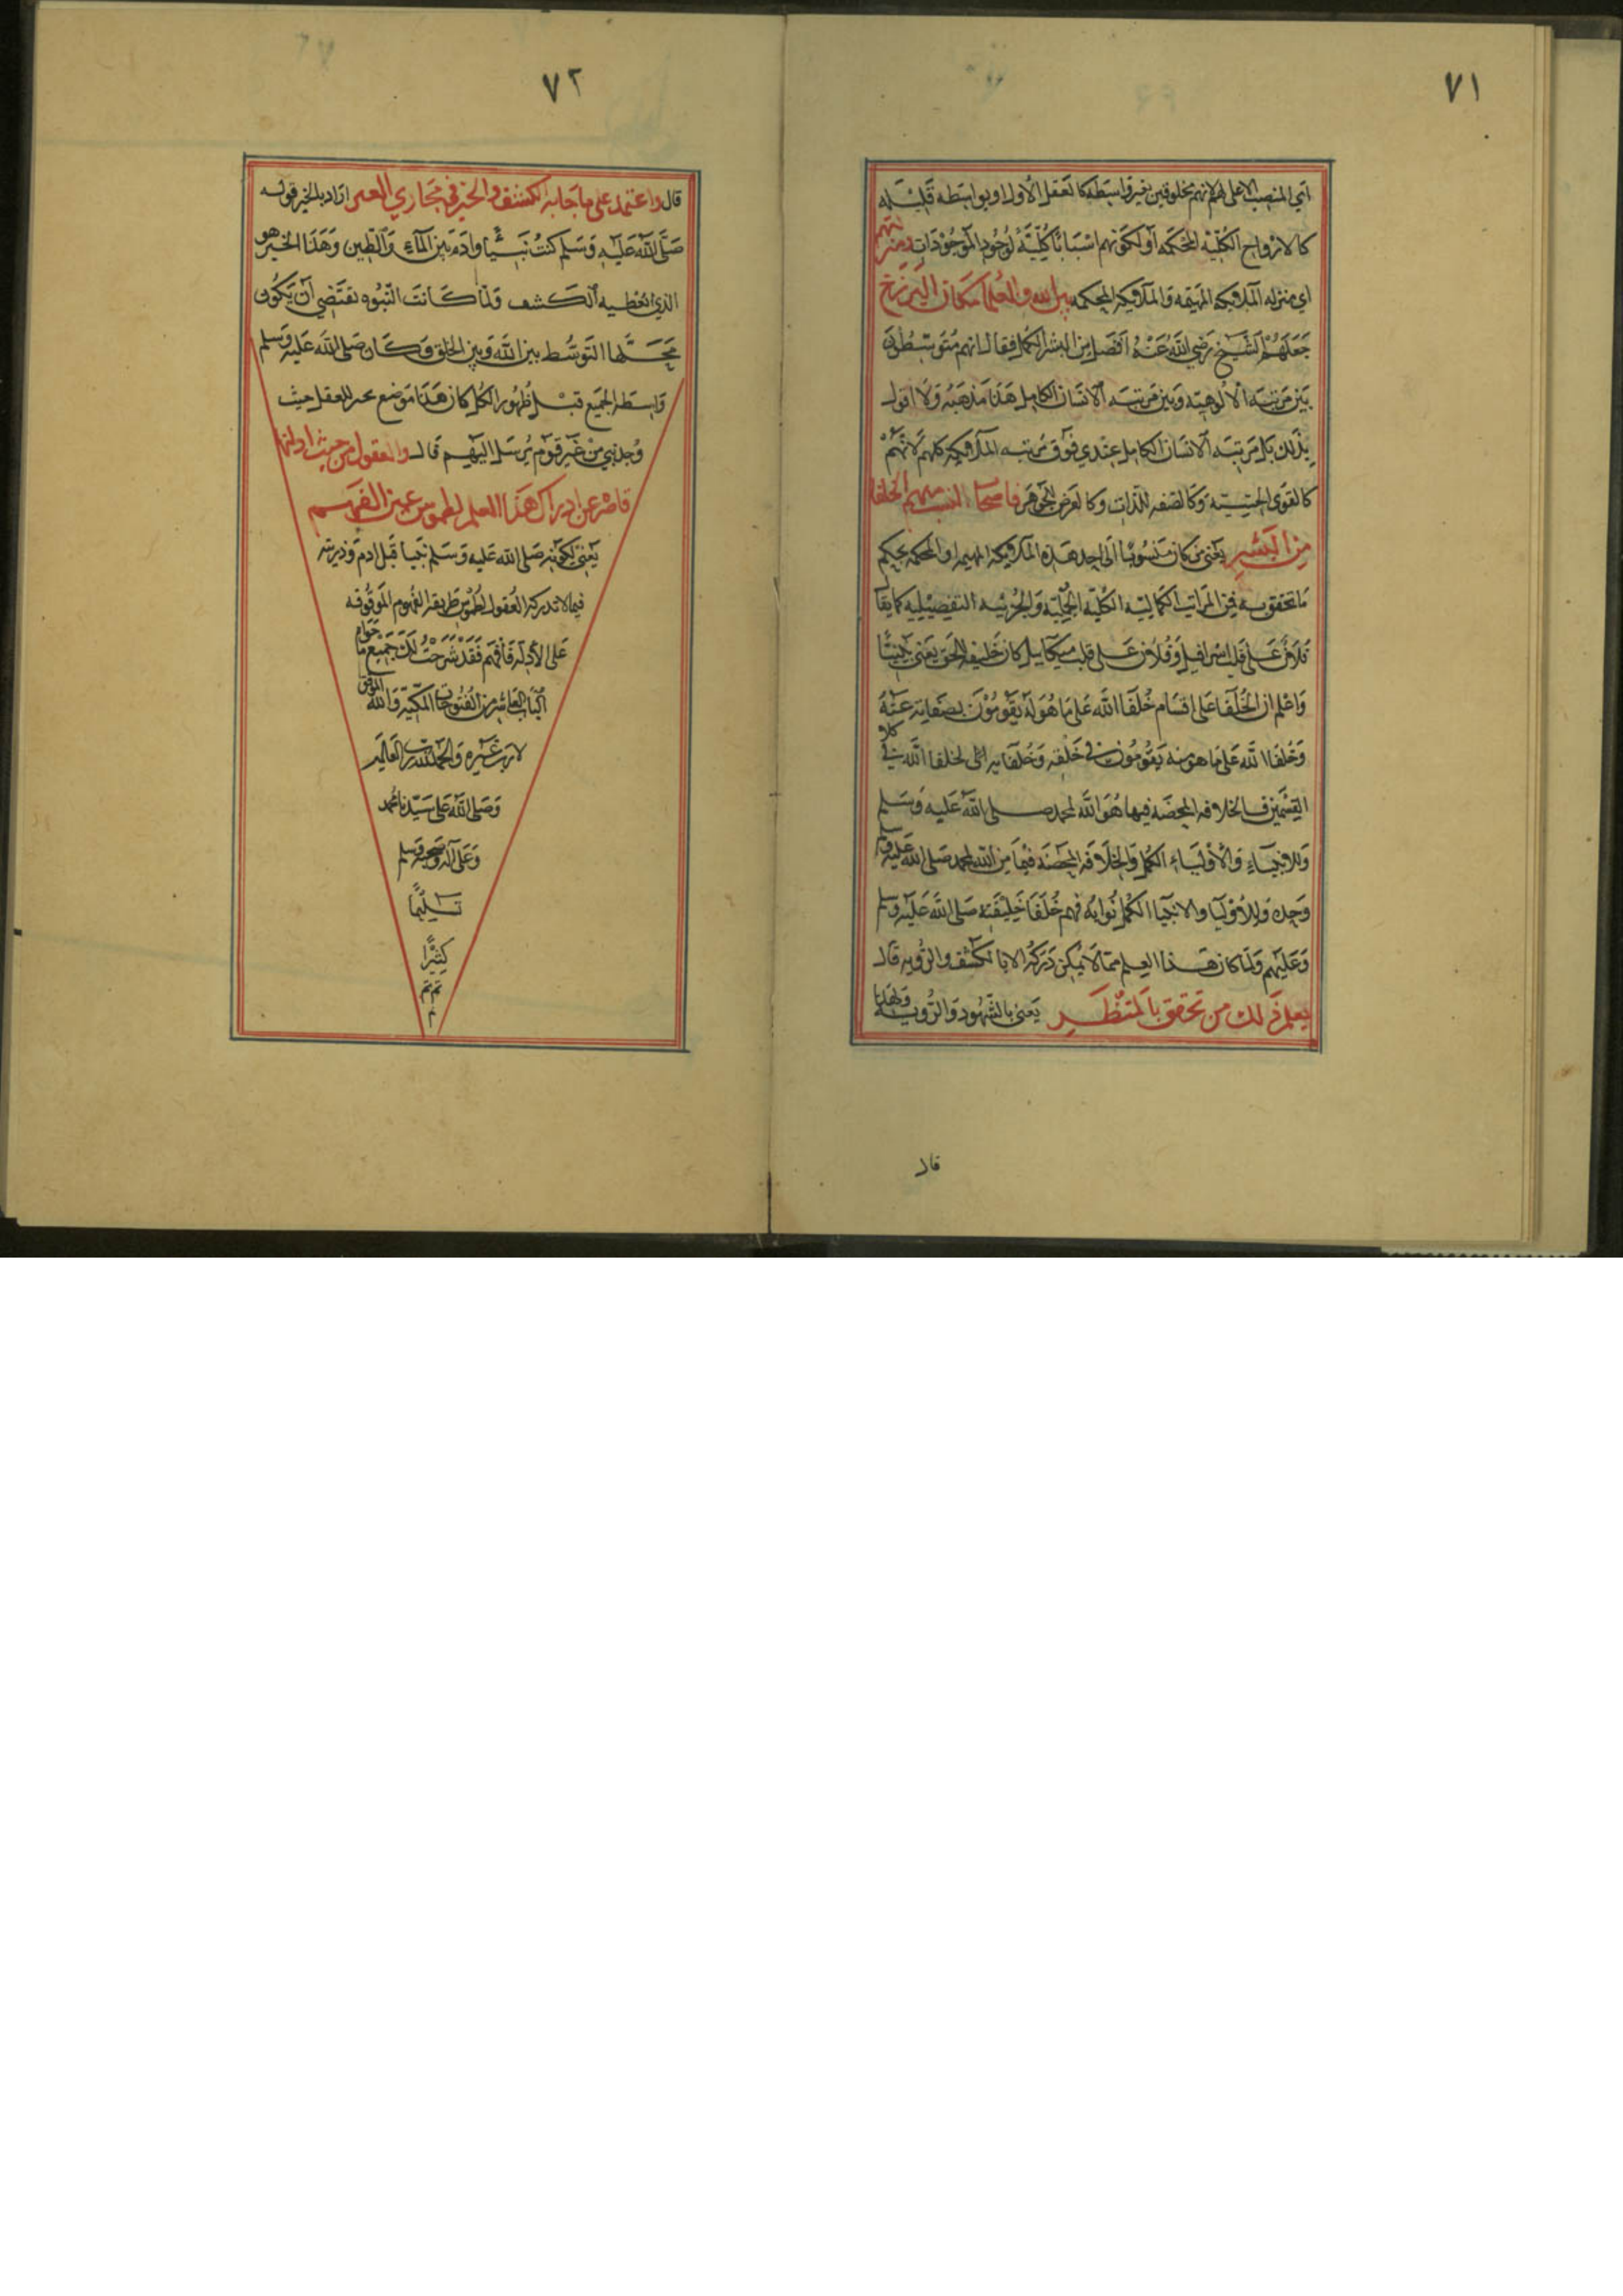 ٧١
اي المنصب الاعلى لهم لانهم مخلوقين بغير واسطة كالعقل الأول او بواسطة قليله
كالارواح الكلية المحكمه أو لكونهم اسبابًا كُلّيّةً لوُجُود الموجُودَات ومنزلتهم
اي منزله الملائكه المهيمه والملائكة المحكمه بين الله والعُلما مكان البرزخ
جَعَلَهُمْ الشَّيخ رَضي الله عَنْهُ افضل من البشر الكمل فقال انهم مُتَوسّطُون
بَين مَرتبَه الالوهيّه وَبَين مَرتبَه الانسَان الكامل هَذا مَذهَبُه وَلا اقول
بذلك بَل مَرتبَه الانسَان الكامل عندي فوق مَرتبه الملائكه كلهم لانهُم
كالقوى الحسّيّه وَكالصفه للذات وكالعَرض للجَوهَر فاصحَاب النسب منهم الخلفا
مِنَ البَشَر يعني من كان منسُوبًا الى احد هَذه الملائكة المهيمه او المحكمه بحكم
مَا تحققوا به في المراتب الكماليّه الكليّه الجُمليّه وَالجُزئيه التفصيليه كما يقال
فلانٌ عَلى قلب اسرافيل وَفلان عَلى قلب ميكاييل كان خليفة للحق يعني
وَاعْلم ان الخُلَفَا عَلى اقسَام خُلَفَا الله عَلى مَا هُوَ له يَقُومُوْنَ بصفاته عَنْهُ
وَخُلَفَا الله عَلى مَا هو منه يَقُومُونَ في خَلقه وَخُلفَا لخلفا الله في كلا
القِسْمَين فالخلافه المحضَه فيها هُوَ الله لمحمد صلى الله عَليه وَسَلم
وَللانبيَاءِ وَالأوليَاءِ الكُمَّل وَالخِلَافَه المحضَة فيمَا مِن الله لمحمد صلى الله عَليه وَسلم
وَحده وَللأوليَا وَالانبيَا الكُمل نُوابه فهم خُلَفَا خَليفَته صَلى الله عَليْه وسلم
وَعَليهم وَلما كان هَذا العلم ممّا لا يمكن دَركهُ الا بالكشف وَالرُّويه قال
يعلم ذَلك من تحقق بالمَنْظَر يَعني بالشّهُود وَالرُّويه وَلهذا
قال
٧٢
قال واعتمد على ما جَا به الكشف والخبر في مجَاري العبر اراد بالخبر قوله
صَلى الله عَليه وَسَلم كنتُ نبيًّا وَادَم بَين الماءِ وَالطين وَهَذا الخبر هو
الذي يعْطيه الكَشف وَلمّا كَانت النّبُوه تقتَضي أن يَكُون
مَحَلها التوسُّط بين الله وَبين الخلق وَكَان صَلى الله عَليه وسلم
وَاسطَة الجميع قبْل ظهُور الكُل كان هَذا مَوضع للعقل حيث
وُجد نبي مِنْ غَير قَوم يُرسَل اليهم قَال والعقول من حيث ادلتها
قاصرة عن ادراك هَذا العلم لطموس عين الفهم
يَعني لكونه صَلى الله عَليه وَسَلم نبيا قبل ادم وَذريته
فيما لا تدركه العُقول لطُموس طريقة الفهُوم الموقُوفه
عَلى الأدله فافهم فَقَد شرَحتُ لكَ جَميع مَا حَوَاه
البَاب العاشر من الفُتوحات المكيّة وَالله الموفق
لا رب غَيره وَالحمد لله رب العَالمين
وَصَلى الله عَلى سَيّدنا محمد
وَعَلى آله وَصَحبه وَسَلم
تَسْليمًا
كثيرًا
تم تم
م